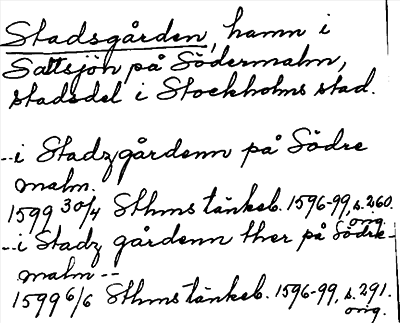 Stadsgården, hamn i
Saltsjön på Södermalm,
stadsdel i Stockholms stad.
--i Stadzgårdenn på Södre
malm.
1599 30/4 Sthms tänkeb. 1596-99, s. 260.
orig.
--i Stadz gårdenn ther på Södre-
malm --
1599 6/6 Sthms tänkeb. 1596-99, s. 291.
orig.